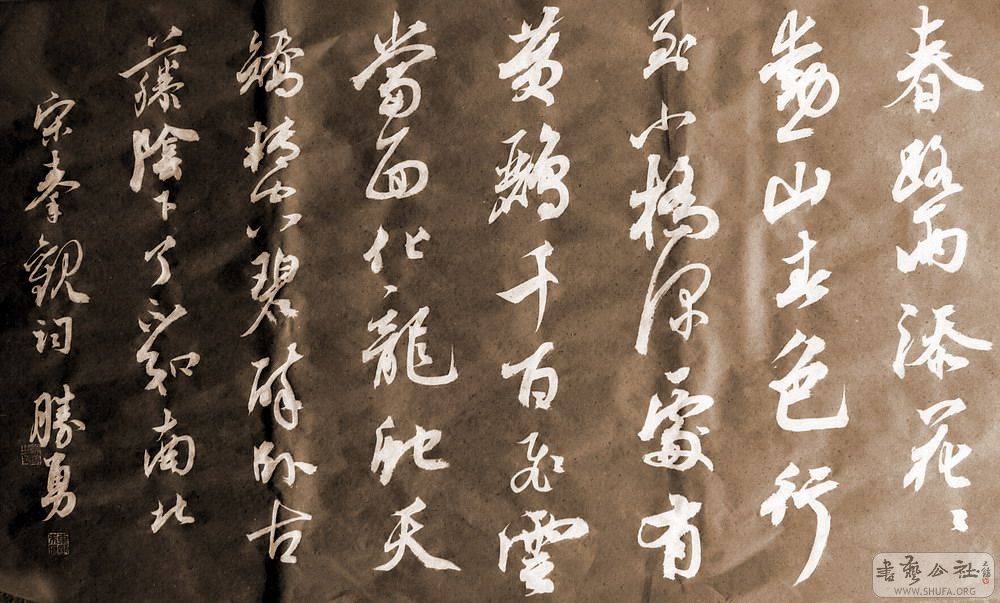 春路雨添花〻
動一山春色行
至小橋深處有
黄鸝千百飛雲
當面化龍蛇夭
矯轉空碧醉卧古
藤陰下了不知南北
宋秦觀詞 勝勇
書藝公社
WWW.SHUFA.ORG